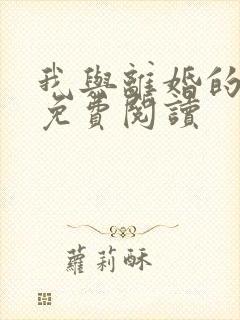 我與離婚的
免費閱讀
蘿莉酥